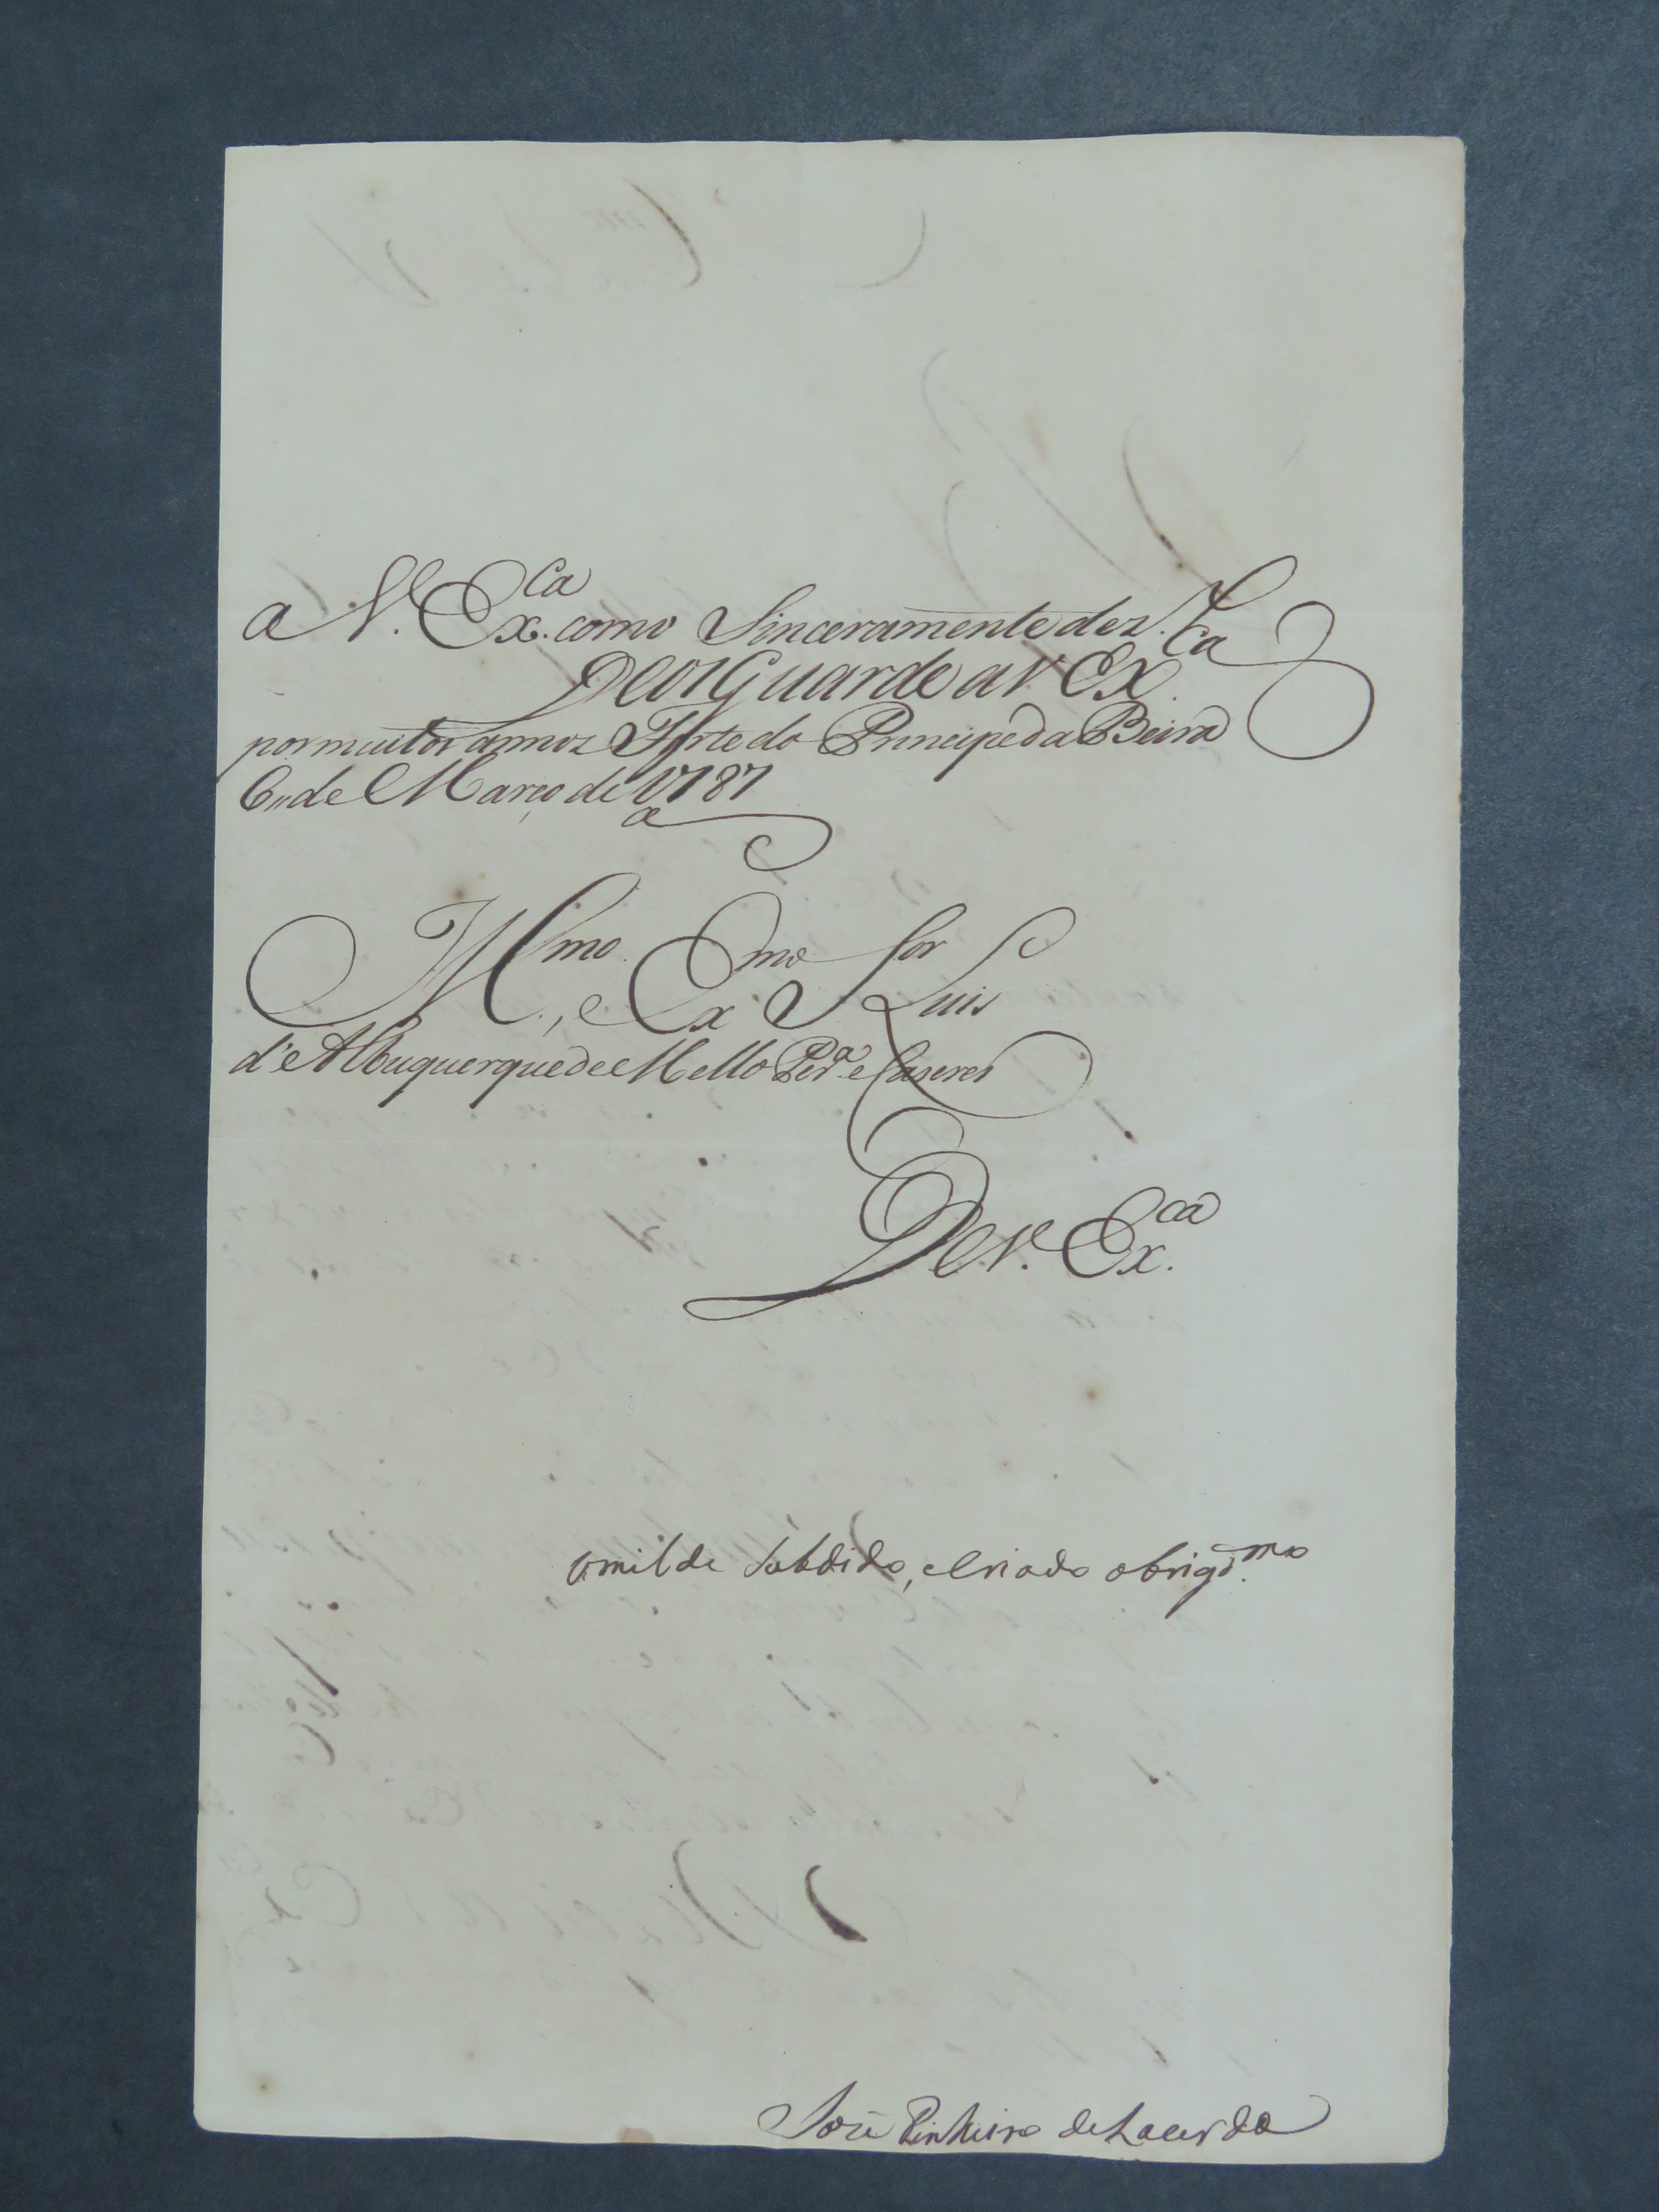 a V. Ex.ca como Sinceramente dez.
Deos Guarde a V. Ex.ca
por muitos annos Forte do Principe da Beira
6 de Março de 1787
Illmo., e Exmo Sor Luis
d'Albuquerque de Mello Per.a e Caseres
De V. Ex.ca
Umilde Subdido, e Criado obrigd.mo
José Pinheiro de Lacerda